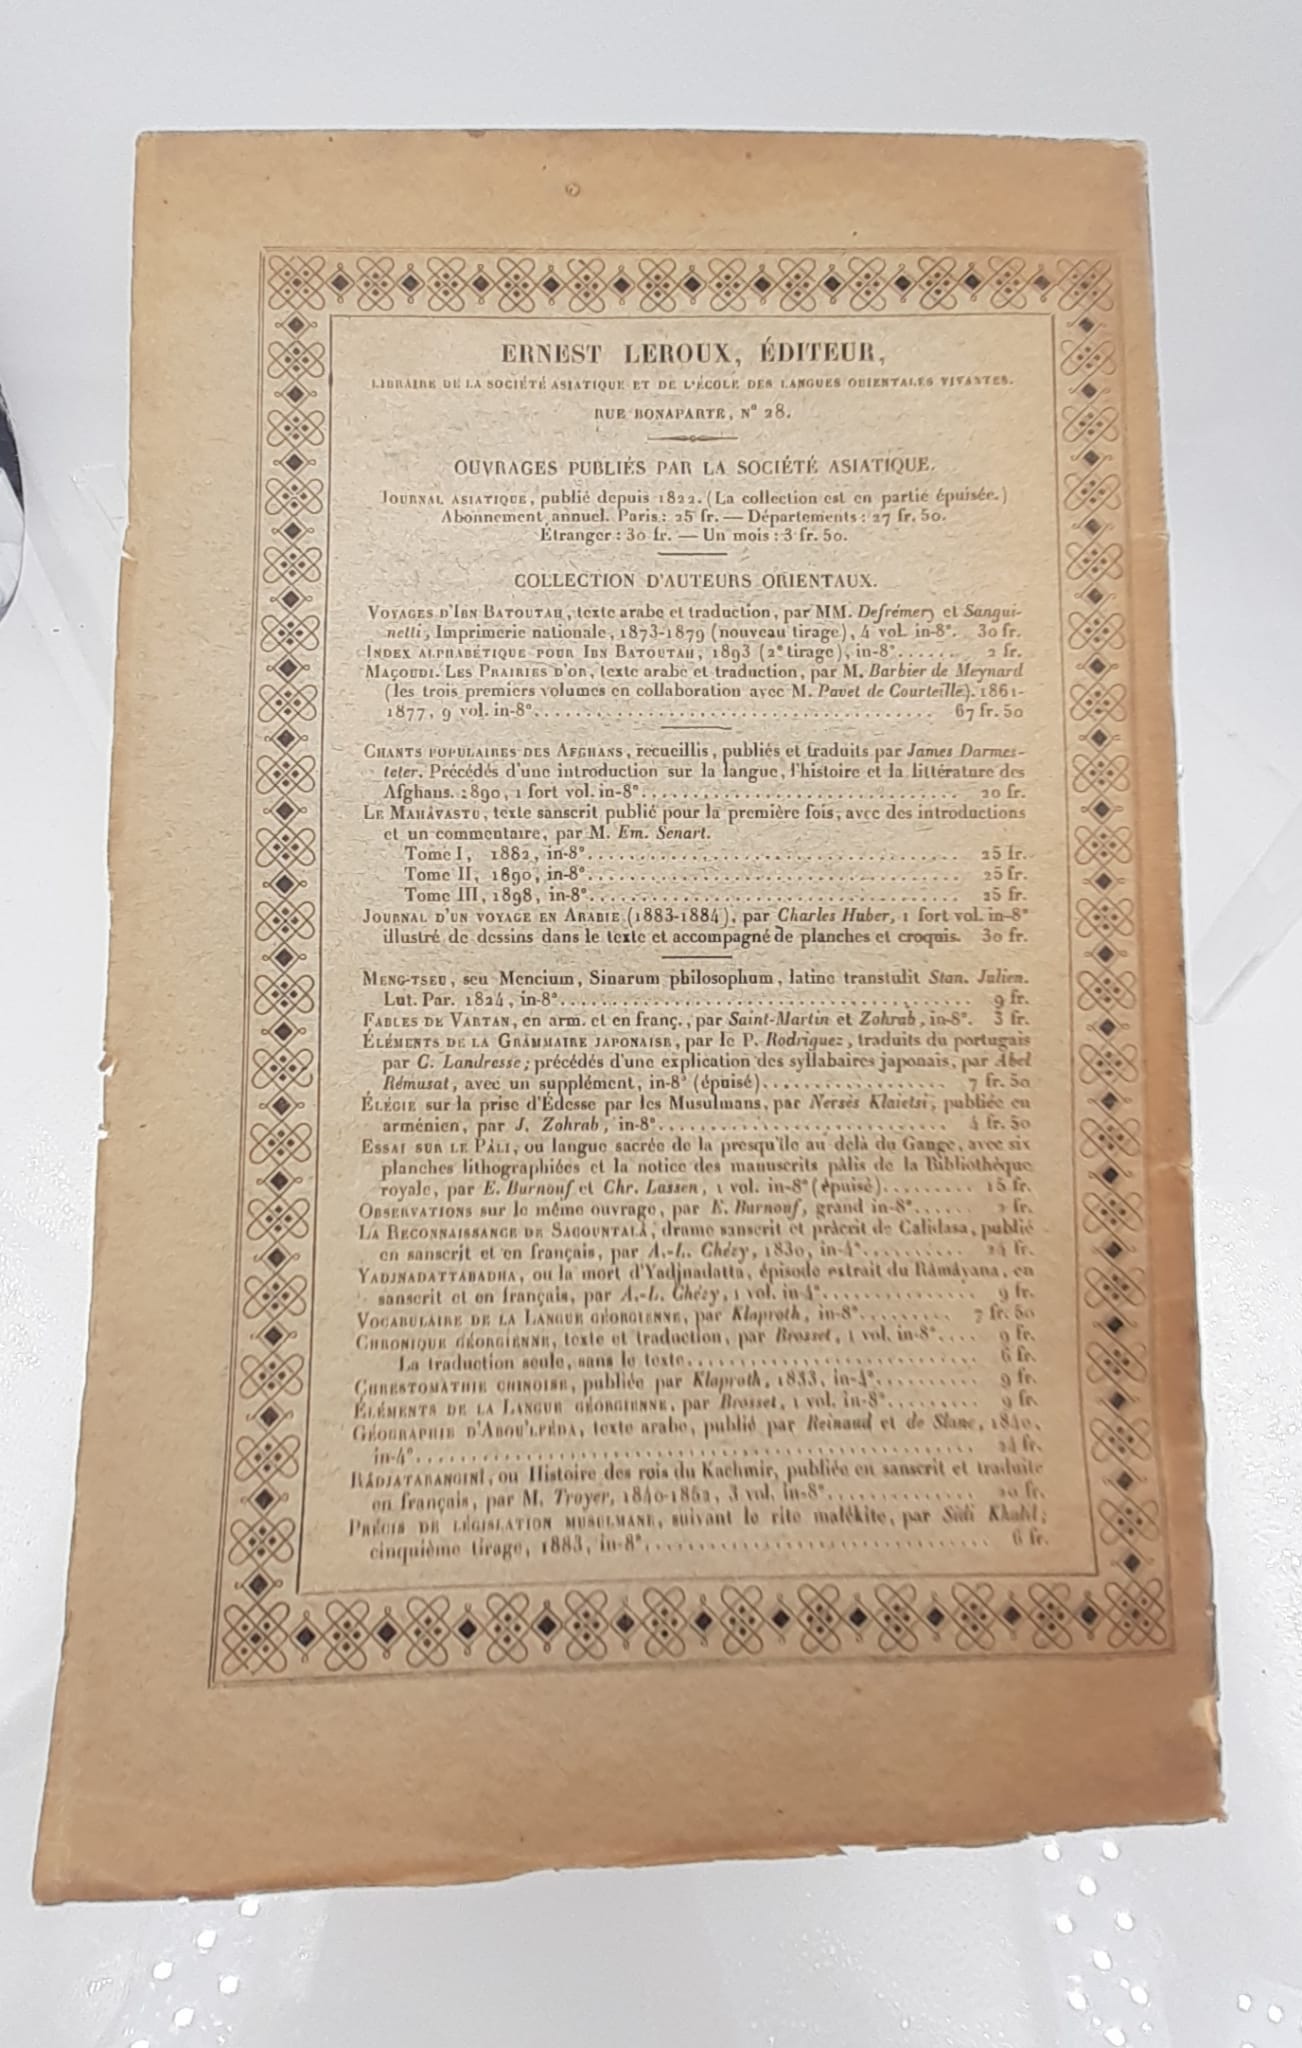 ERNEST LEROUX, ÉDITEUR,
LIBRAIRE DE LA SOCIÉTÉ ASIATIQUE ET DE L'ÉCOLE DES LANGUES ORIENTALES VIVANTES.
RUE BONAPARTE, Nº 28.
OUVRAGES PUBLIÉS PAR LA SOCIÉTÉ ASIATIQUE.
JOURNAL ASIATIQUE, publié depuis 1822. (La collection est en partie épuisée.)
Abonnement annuel. Paris: 25 fr. — Départements: 27 fr. 50.
Étranger : 30 fr. — Un mois : 3 fr. 50.
COLLECTION D'AUTEURS ORIENTAUX.
VOYAGES D'IBN BATOUTAH, texte arabe et traduction, par MM. Defrémery et Sangui-
netti, Imprimerie nationale, 1873-1879 (nouveau tirage), 4 vol. in-8°. 30 fr.
INDEX ALPHABÉTIQUE POUR IBN BATOUTAH, 1893 (2e tirage), in-8°...... 2 fr.
MAÇOUDI. LES PRAIRIES D'OR, texte arabe et traduction, par M. Barbier de Meynard
(les trois premiers volumes en collaboration avec M. Pavet de Courteille). 1861-
1877, 9 vol. in-8°.................................... 67 fr. 50
CHANTS POPULAIRES DES AFGHANS, recueillis, publiés et traduits par James Darmes-
teter. Précédés d'une introduction sur la langue, l'histoire et la littérature des
Afghans. 1890, 1 fort vol. in-8°............................. 20 fr.
LE MAHÂVASTU, texte sanscrit publié pour la première fois, avec des introductions
et un commentaire, par M. Em. Senart.
Tome I, 1882, in-8°.................................. 25 fr.
Tome II, 1890, in-8°.................................. 25 fr.
Tome III, 1898, in-8°.................................. 25 fr.
JOURNAL D'UN VOYAGE EN ARABIE (1883-1884), par Charles Huber, 1 fort vol. in-8°
illustré de dessins dans le texte et accompagné de planches et croquis. 30 fr.
MENG-TSEU, seu Mencium, Sinarum philosophum, latine transtulit Stan. Julien.
Lut. Par. 1824, in-8°..................................... 9 fr.
FABLES DE VARTAN, en arm. et en franç., par Saint-Martin et Zohrab, in-8°. 3 fr.
ÉLÉMENTS DE LA GRAMMAIRE JAPONAISE, par le P. Rodriguez, traduits du portugais
par C. Landresse; précédés d'une explication des syllabaires japonais, par Abel
Rémusat, avec un supplément, in-8° (épuisé)................. 7 fr. 50
ÉLÉGIE sur la prise d'Édesse par les Musulmans, par Nersès Klaietsi, publiée en
arménien, par J. Zohrab, in-8°.......................... 4 fr. 50
ESSAI SUR LE PÂLI, ou langue sacrée de la presqu'île au delà du Gange, avec six
planches lithographiées et la notice des manuscrits pâlis de la Bibliothèque
royale, par E. Burnouf et Chr. Lassen, 1 vol. in-8° (épuisé)......... 15 fr.
OBSERVATIONS sur le même ouvrage, par E. Burnouf, grand in-8°...... 2 fr.
LA RECONNAISSANCE DE SACOUNTALÂ, drame sanscrit et prâcrit de Calidasa, publié
en sanscrit et en français, par A.-L. Chézy, 1830, in-4°.......... 24 fr.
YADJNADATTABADHA, ou la mort d'Yadjnadatta, épisode extrait du Râmâyana, en
sanscrit et en français, par A.-L. Chézy, 1 vol. in-4°............. 9 fr.
VOCABULAIRE DE LA LANGUE GÉORGIENNE, par Klaproth, in-8°......... 7 fr. 50
CHRONIQUE GÉORGIENNE, texte et traduction, par Brosset, 1 vol. in-8°.... 9 fr.
La traduction seule, sans le texte............................ 6 fr.
CHRESTOMATHIE CHINOISE, publiée par Klaproth, 1833, in-4°.......... 9 fr.
ÉLÉMENTS DE LA LANGUE GÉORGIENNE, par Brosset, 1 vol. in-8°......... 9 fr.
GÉOGRAPHIE D'ABOU'LFÉDA, texte arabe, publié par Reinaud et de Slane, 1840,
in-4°................................................ 24 fr.
RÂDJATARANGINÎ, ou Histoire des rois du Kachmîr, publiée en sanscrit et traduite
en français, par M. Troyer, 1840-1852, 3 vol. in-8°.............. 20 fr.
PRÉCIS DE LÉGISLATION MUSULMANE, suivant le rite malékite, par Sidi Khalil;
cinquième tirage, 1883, in-8°............................... 6 fr.